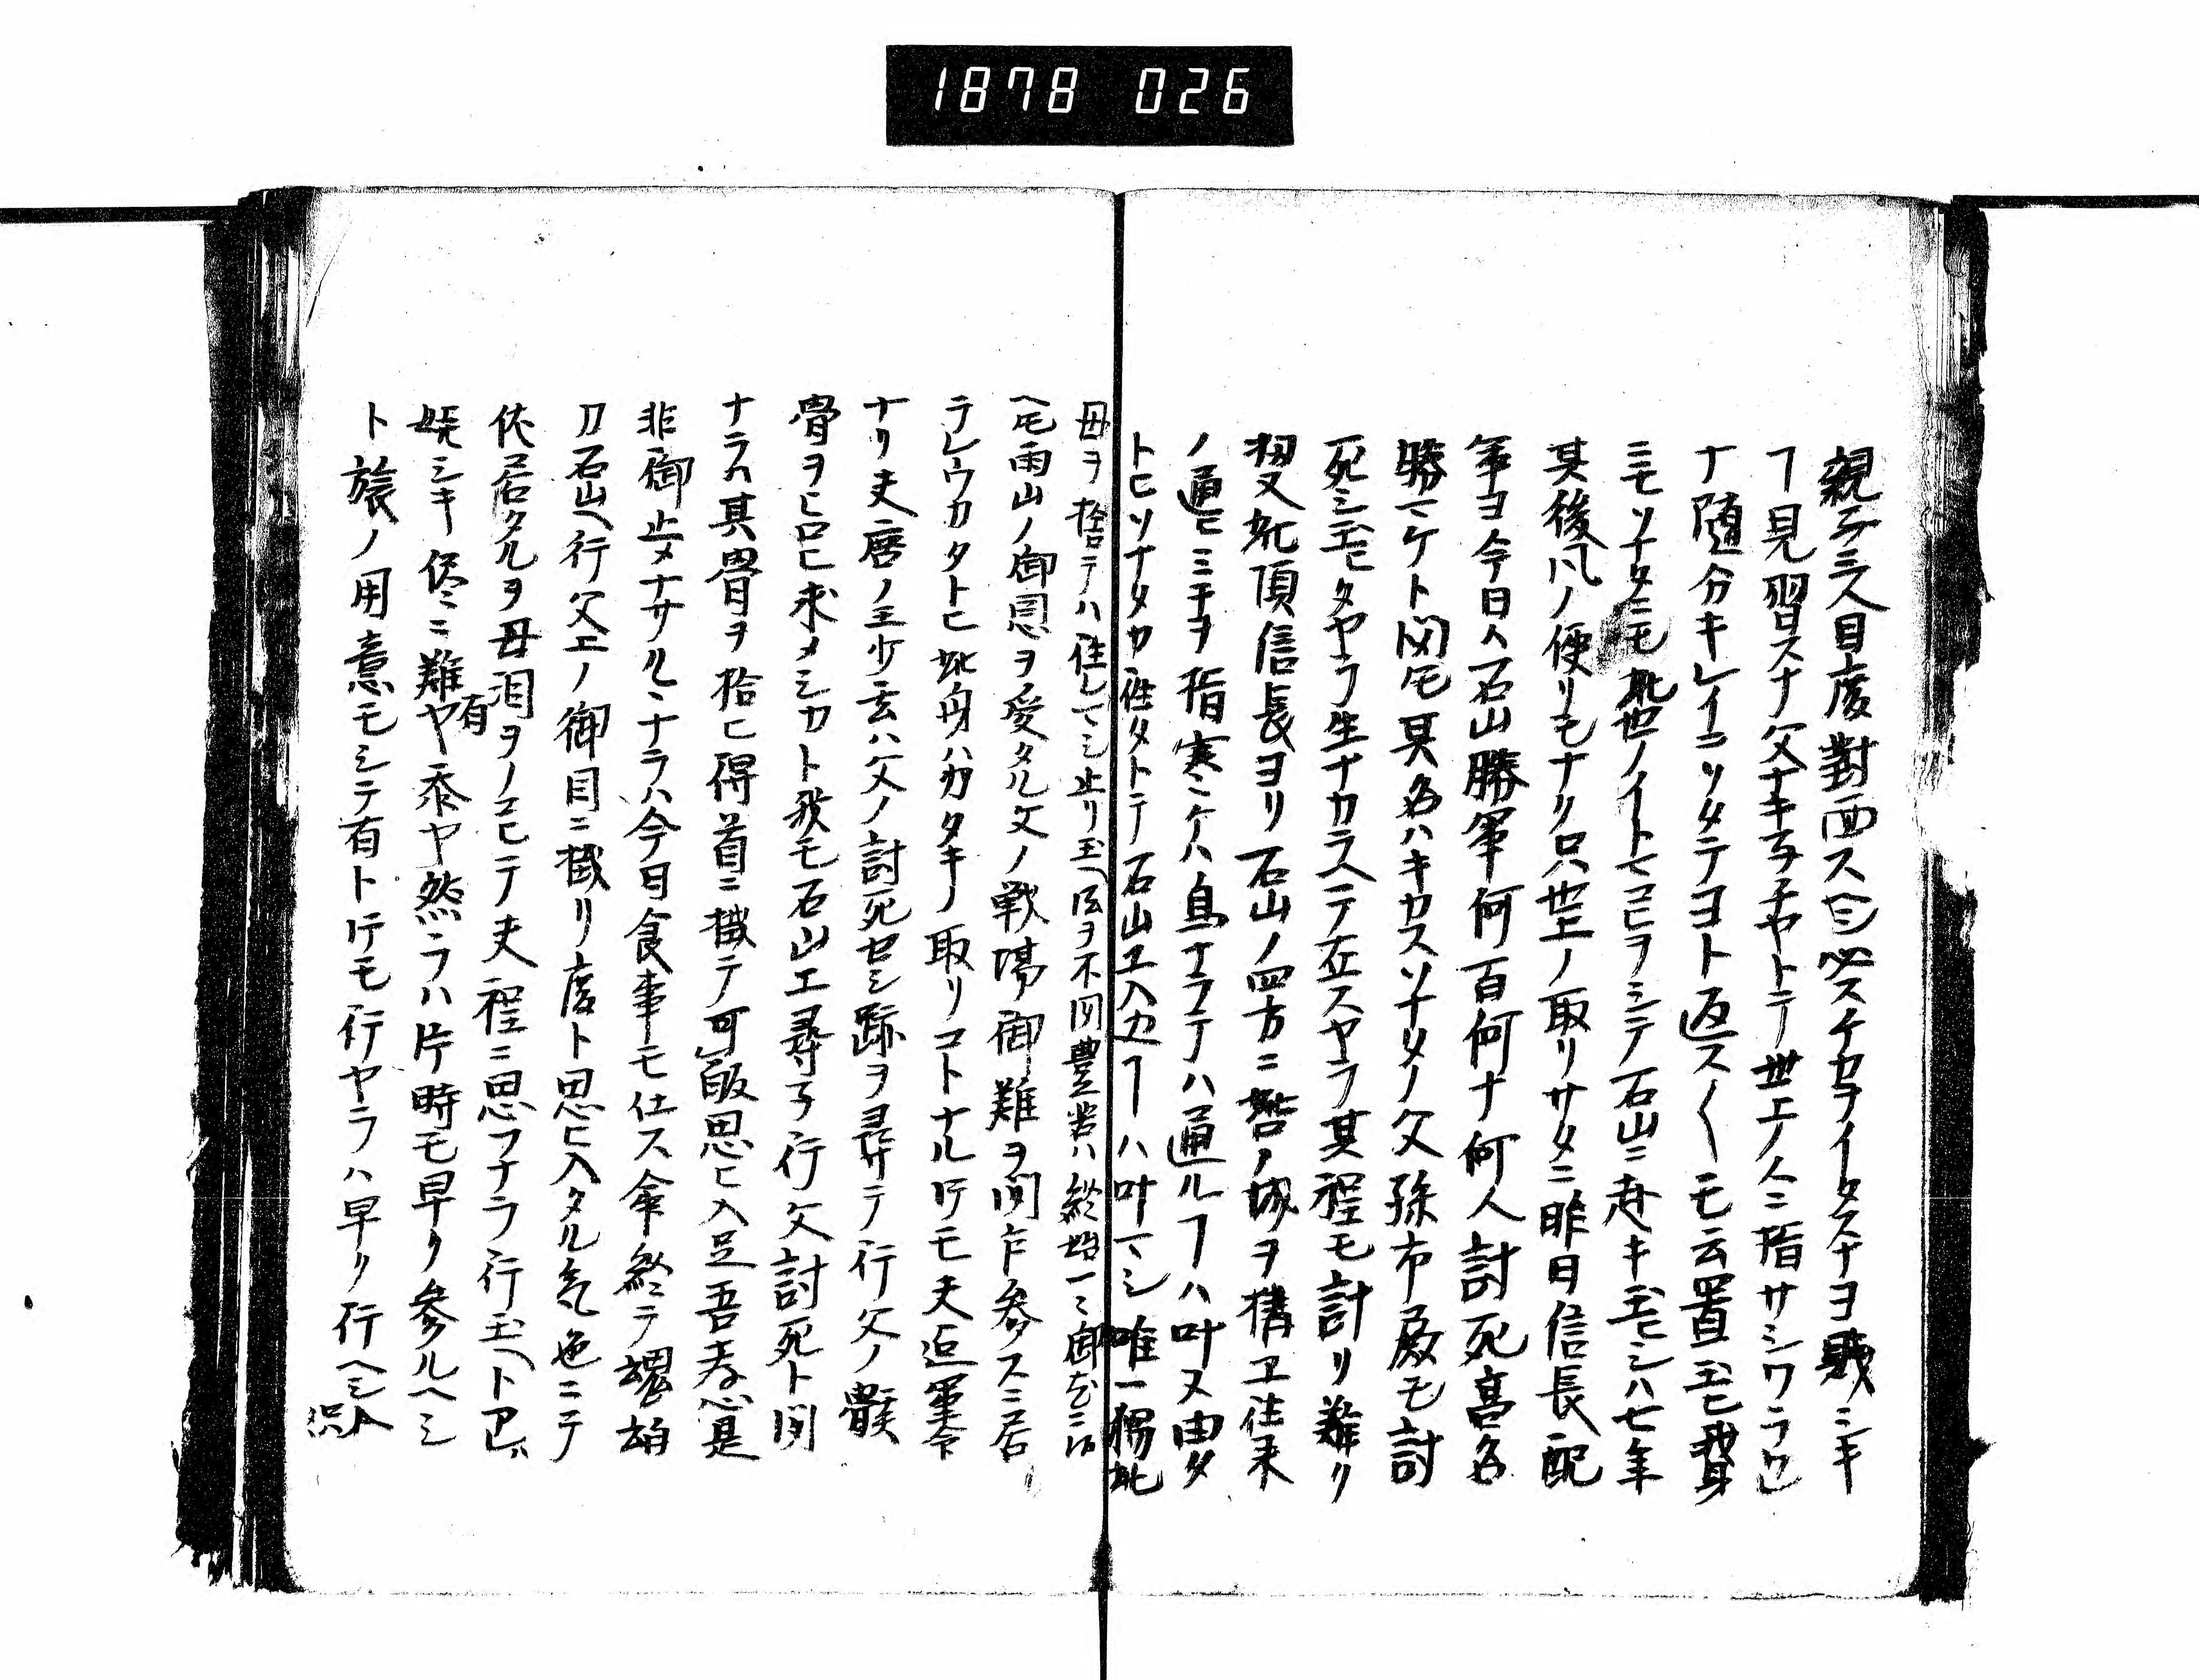 1878 026
親子三人目度對面スヘシ必スケカヲイタスナヨ賤シキ
ヿ見習スナ父ナキ子チヤトテ世上ノ人ニ指サシワラワレ
ナ随分キレイニソタテヨト返ス〱モ云置玉ヒ我身
ニモソナタニモ此世ノイトモコヒヲシテ石山ニ赴キ玉ヒシハ七年
其後風ノ便リモナク只世上ノ取リサタニ昨日信長ノ配
軍ヨ今日ハ石山勝軍何百何ナ何人討死高名
勝マケト聞モ其名ハキカスソナタノ父孫市殿モ討
死シ玉ヒタヤラ生ナカラヘテ在スヤラ其程モ計リ難ク
扨又此頂信長ヨリ石山ノ四方ニ砦ノ城ヲ構エ往来
ノ通ヒミチヲ指塞ケハ鳥ナラテハ通ルヿハ叶ヌ由タ
トヒソナタカ往タトテ石山エ入込ヿハ叶マシ唯一獨此
母ヲ捨テハ往レマシ止リ玉ヘ
ヘモ両山ノ御恩ヲ受タル父ノ戦場御難ヲ聞乍参スニ居
テレウカタトヒ此身ハカタキノ取リコトナル圧モ夫迄軍令
ナリ夫唐ノ王少玄ハ父ノ討死セシ跡ヲ尋テ行父ノ骸
骨ヲヒロヒ求メシカト我モ石山エ尋子行父討死ト聞
ナラハ其骨ヲ拾ヒ得首ニ掛テ可皈思ヒ入是吾孝心是
非御止メナサルヽナラハ今日食事モ仕ス命終テ魂魄
刀石山ヘ行父エノ御目ニ掛リ度ト思ヒ入タル気色ニテ
伏居タルヲ母泪ヲノコヒテ夫程ニ思フナラ行玉ヘトアレハ
嬉シキ侭ニ難有ヤ忝ヤ然ラハ片時モ早ク参ルヘシ
ト旅ノ用意モシテ有ト圧モ行ヤラハ早ク行ヘシ